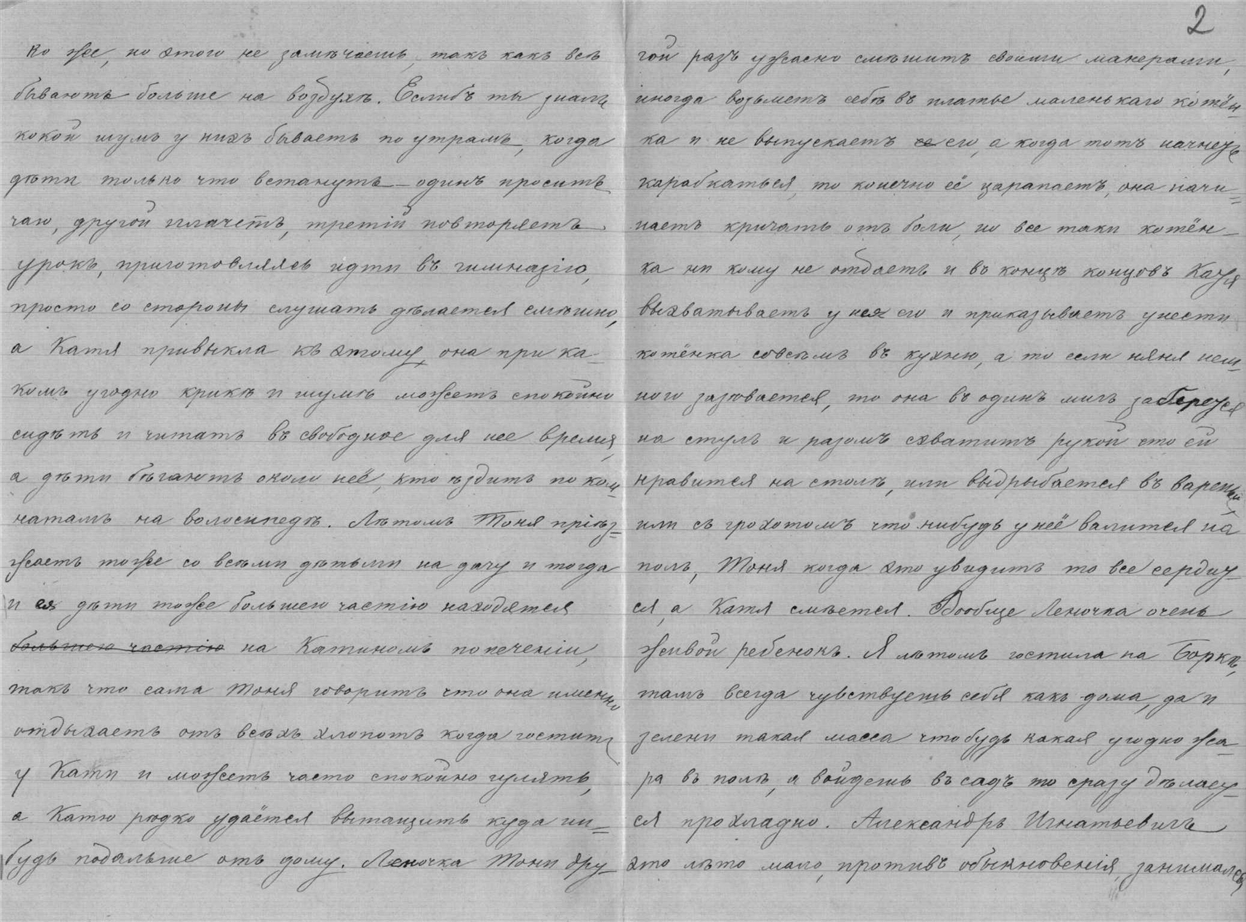 ко же, но этого не замѣчаешь, такъ какъ всѣ
бываютъ больше на воздухѣ. Еслибъ ты зналъ
какой шумъ у нихъ бываетъ по утрамъ, когда
дѣти только что встанутъ – одинъ проситъ
чаю, другой плачетъ, третій повторяетъ
урокъ, приготовляясь идти въ гимназію,
просто со стороны слушать дѣлается смѣшно,
а Катя привыкла къ этому, она при ка-
комъ угодно крикѣ и шумѣ можетъ спокойно
сидѣть и читать въ свободное для нее время,
а дѣти бѣгаютъ около неё, кто ѣздитъ по ком-
натамъ на волосипедѣ. Лѣтомъ Тоня пріѣз=
жаетъ тоже со всѣми дѣтьми на дачу и тогда
и ея дѣти тоже большею частію находятся
большею частію на Катиномъ попеченіи,
такъ что сама Тоня говоритъ что она именно
отдыхаетъ отъ всѣхъ хлопотъ когда гоститъ
у Кати и можетъ часто спокойно гулять,
а Катю рѣдко удаётся вытащить куда ни=
будь подальше отъ дому. Леночка Тони дру-
2
гой разъ ужасно смѣшитъ своими манерами,
иногда возьметъ себѣ въ платье маленькаго котён-
ка и не выпускаетъ его, а когда тотъ начнетъ
карабкаться, то конечно её царапаетъ, она начи=
наетъ кричать отъ боли, но все таки котён-
ка ни кому не отдаетъ и въ концѣ концовъ Катя
выхватываетъ у нея его и приказываетъ унести
котёнка совсѣмъ въ кухню, а то если няня нем-
ного зазѣвается, то она въ одинъ мигъ заберется
на стулъ и разомъ схватитъ рукой что ей
нравится на столѣ, или выдрыбается въ вареньи,
или съ грохотомъ что нибудь у неё валится на
полъ, Тоня когда это увидитъ то все сердит-
ся, а Катя смѣется. Вообще Леночка очень
живой ребенокъ. Я лѣтомъ гостила на Боркѣ,
тамъ всегда чувствуешь себя какъ дома, да и
зелени такая масса что будь какая угодно жа-
ра въ полѣ, а войдешь въ садъ то сразу дѣлает-
ся прохладно. Александръ Игнатьевичъ
это лѣто мало, противъ обыкновенія, занимался